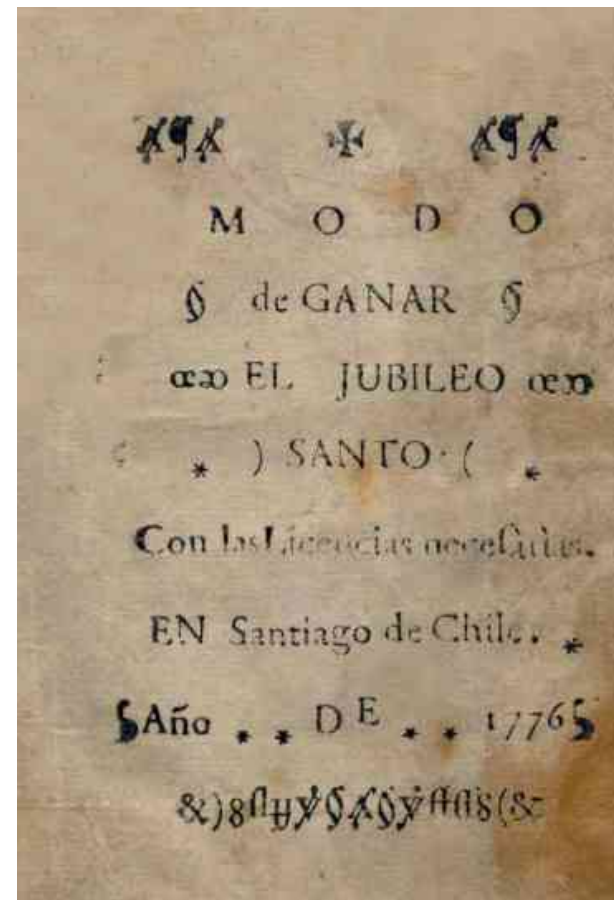 ✠
M O D O
de GANAR
EL JUBILEO
* ) SANTO·( *
Con las Licencias necesarias.
EN Santiago de Chile. *
Año * * D E * * 1776
&)8 (&